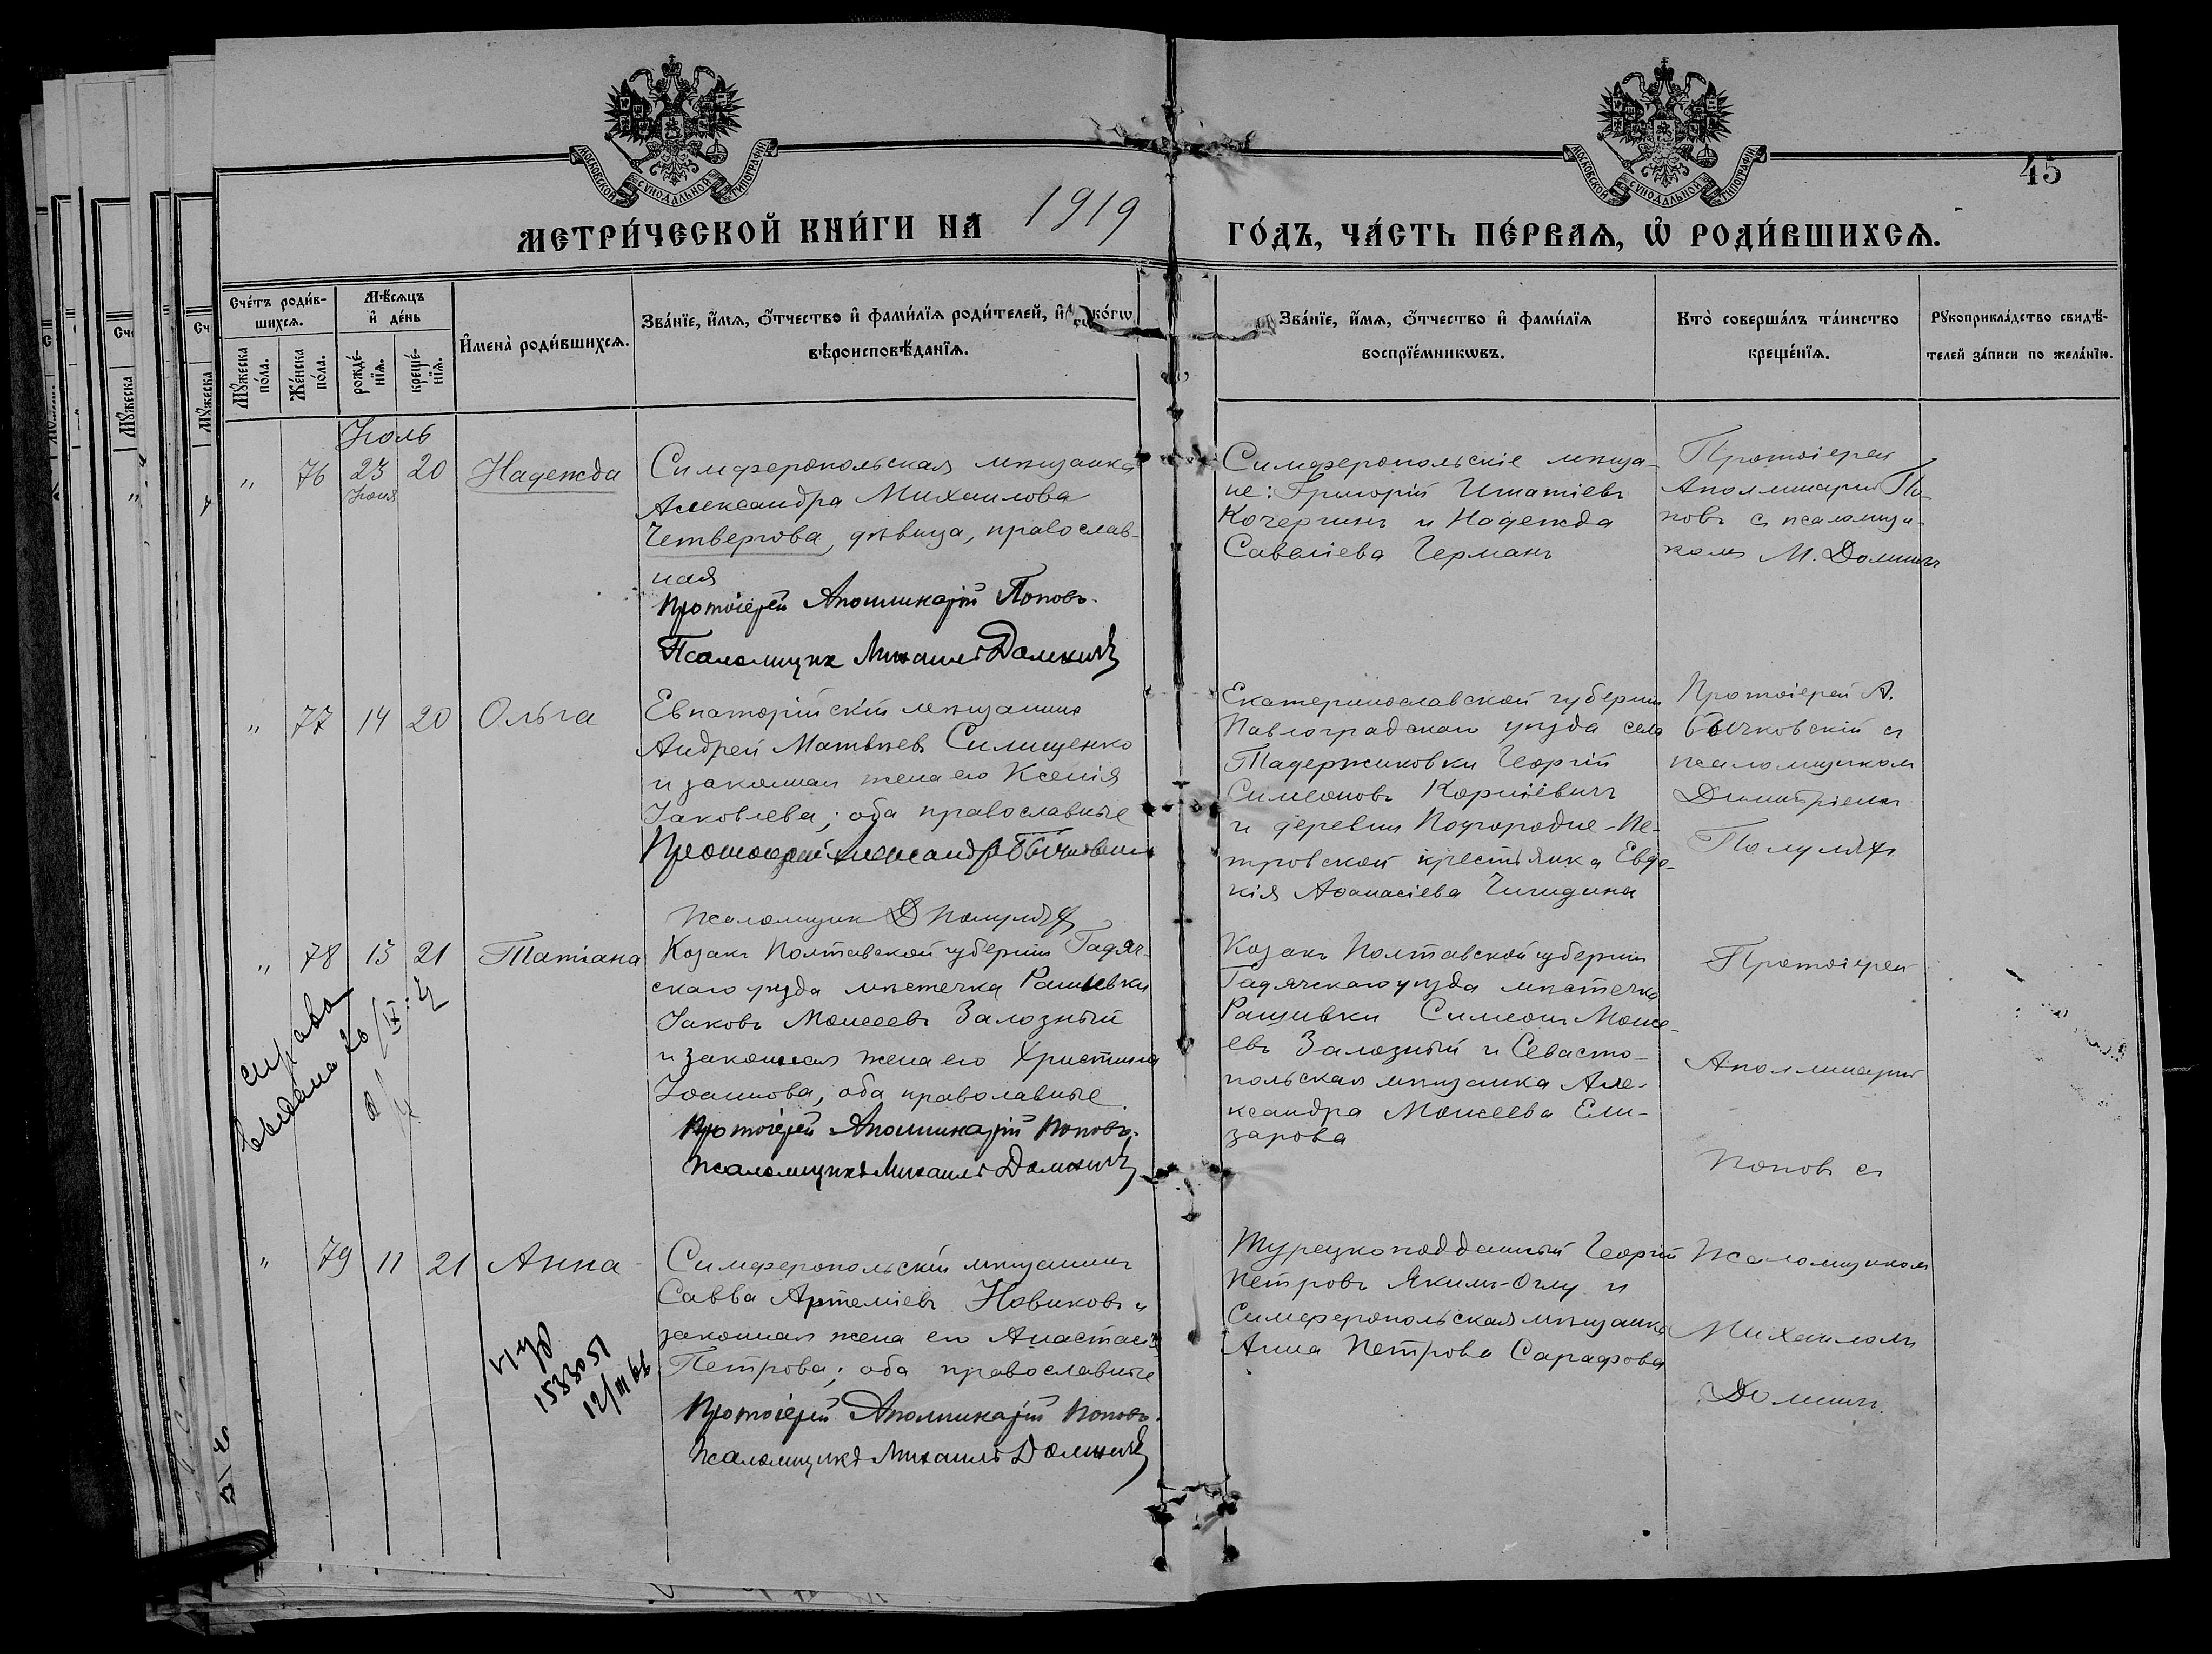 МОСКОВСКОЙ СѴНОДАЛЬНОЙ ТИПОГРАФІИ
МОСКОВСКОЙ СѴНОДАЛЬНОЙ ТИПОГРАФІИ
45
МЕТРИ́ЧЕСКОЙ КНИ́ГИ НА 1919 ГО́ДЪ, ЧА́СТЬ ПЕ́РВАѦ, Ѽ РОДИ́ВШИХСѦ.
Сче́тъ роди́в-
шихсѧ.
Мꙋ́жеска по́ла.
Же́нска по́ла.
Мѣ́сѧцъ
и҆ де́нь
рожде́-
нїѧ.
креще́-
нїѧ.
И҆мена̀ роди́вшихсѧ.
Зва́нїе, и҆́мѧ, ѻ҆́тчество и҆ фами́лїѧ роди́телей, и҆ ко́гѡ
вѣроисповѣ́данїѧ.
Зва́нїе, и҆́мѧ, ѻ҆́тчество и҆ фами́лїѧ
воспрїе́мникѡвъ.
Кто̀ соверша́лъ та́инство
креще́нїѧ.
Рꙋкоприкла́дство свидѣ́-
телей за́писи по жела́нїю.
Июль
" 76 23 20 Надежда
Июня
Симферопольская мѣщанка
Александра Михаилова
Четвергова, дѣвица, православ-
ная
Протоіерей Аполлинарій Поповъ.
Псаломщик Михаилъ Домнич
Симферопольскіе мѣща-
не: Григорій Игнатіевъ
Кочергинъ и Надежда
Савеліева Германъ
Протоіерей
Аполлинарій По-
повъ съ псаломщи-
комъ М. Домничъ
" 77 14 20 Ольга
Евпаторійскій мѣщанинъ
Андрей Матвѣевъ Силищенко
и законная жена его Ксенія
Іаковлева; оба православные
Протоіерей Александръ Бычковскій
Псаломщик Д Полулях
Екатеринославской губерніи
Павлоградскаго уѣзда села
Георгій
Симеоновъ Корніевичъ
и деревни Подгородне-Пе-
тровской крестьянка Евдо-
кія Аѳанасіева
Протоіерей А.
Бычковскій съ
псаломщиком
Димитріемъ
Полулях
" 78 15 21 Татіана
Козакъ Полтавской губерніи Гадяч-
скаго уѣзда мѣстечка Рашевки
Іаковъ Моисеевъ Залозный
и законная жена его Христина
Іоаннова, оба праволавные
Протоіерей Аполлинарій Поповъ.
Псаломщикъ Михаилъ Домнич
Козакъ Полтавской губерніи
Гадячскаго уѣзда мѣстечка
Рашивки Симеонъ Моисе-
евъ Залозный и Севасто-
польская мѣщанка Але-
ксандра Моисеева Ели-
зарова
Протоіерей
Аполлинарій
Поповъ съ
справа
выдана 20/IX
" 79 11 21 Анна
Симферопольскій мѣщанинъ
Савва Артеміевъ Новиковъ и
законная жена его Анастасія
Петрова; оба православные
Протоіерей Аполлинарій Поповъ.
Псаломщикъ Михаилъ Домнич
Турецкоподданный Георгій
Петровъ Якимъ-Оглу и
Симферопольская мѣщанка
Анна Петрова Сарафова
Псаломщиком
Михаиломъ
Домничъ.
1583051
12/III 66